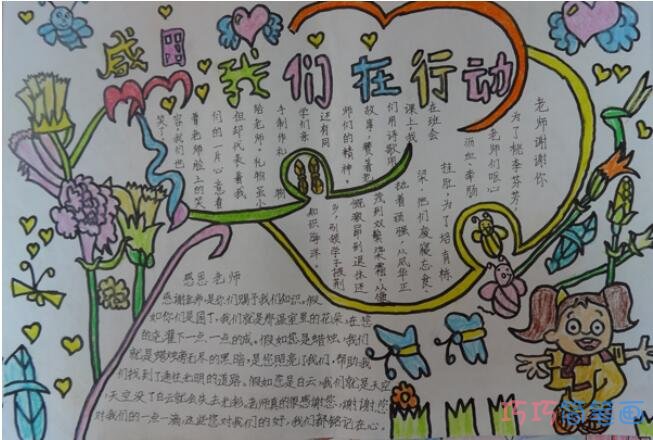 感恩
我们在行动
老师谢谢你
为了桃李芬芳，
老师们呕心
沥血牵肠
挂肚，为了培育栋
梁，他们废寝忘食。
在班会
课上，我
们用诗歌用
故事，赞着老
师们的精神。
还有同
学们亲
手制作礼物
给老师，礼物虽小
但却代表着我
们的一片心意看
着老师脸上的笑
容，我们也
笑了。
知识海洋。
感恩老师
感谢老师，是你们赐予我们知识。假
如你们是园丁，我们就是那温室里的花朵，在您
的浇灌下一点一点的成，假如您是蜡烛，我们
就是蜡烛旁无尽的黑暗，是您照亮了我们，帮助我
们找到了通往光明的道路。假如您是白云，我们就是天空
，天空没了白云就会失去光彩。老师真的很感谢您，谢谢您
对我们的一点一滴，这些您对我们的好，我们都铭记在心。
巧巧简笔画